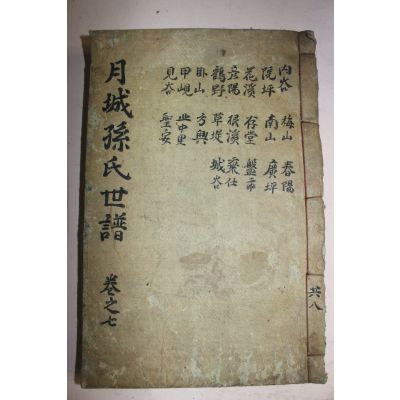 月城孫氏世譜
卷之七
內谷 梅山 春陽
院坪 南山 廣坪
花溪 存堂 盤市
彦陽 根溪 棄仕
鶴野 草堤 城谷
卧山 方興
甲峴 中里
見谷 聖安
共八